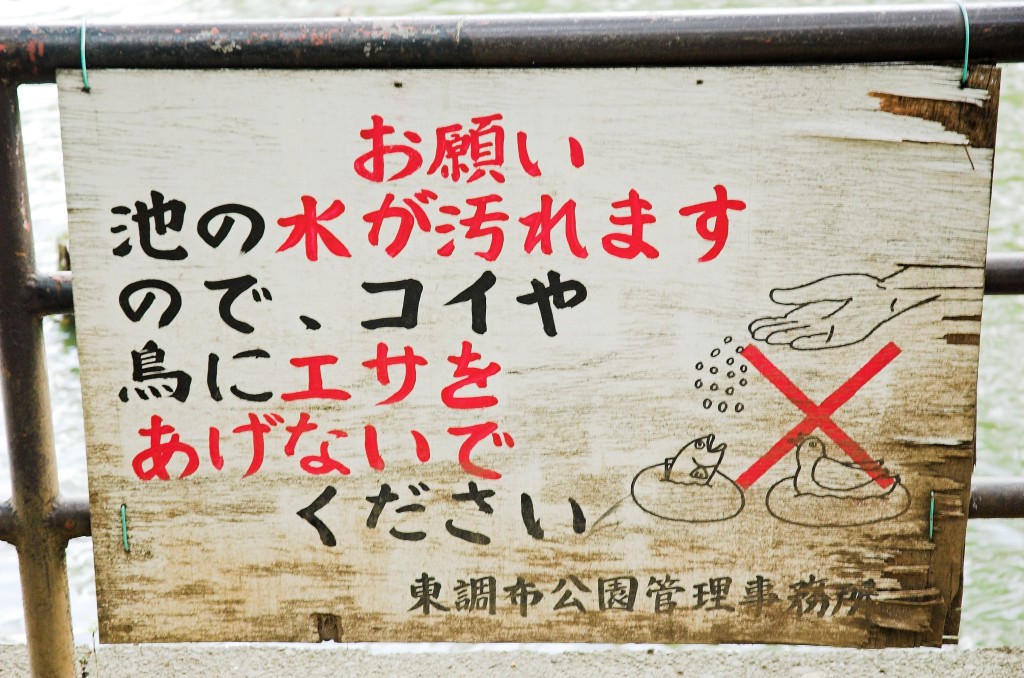 お願い
池の水が汚れます
ので、コイや
鳥にエサを
あげないで
ください
東調布公園管理事務所